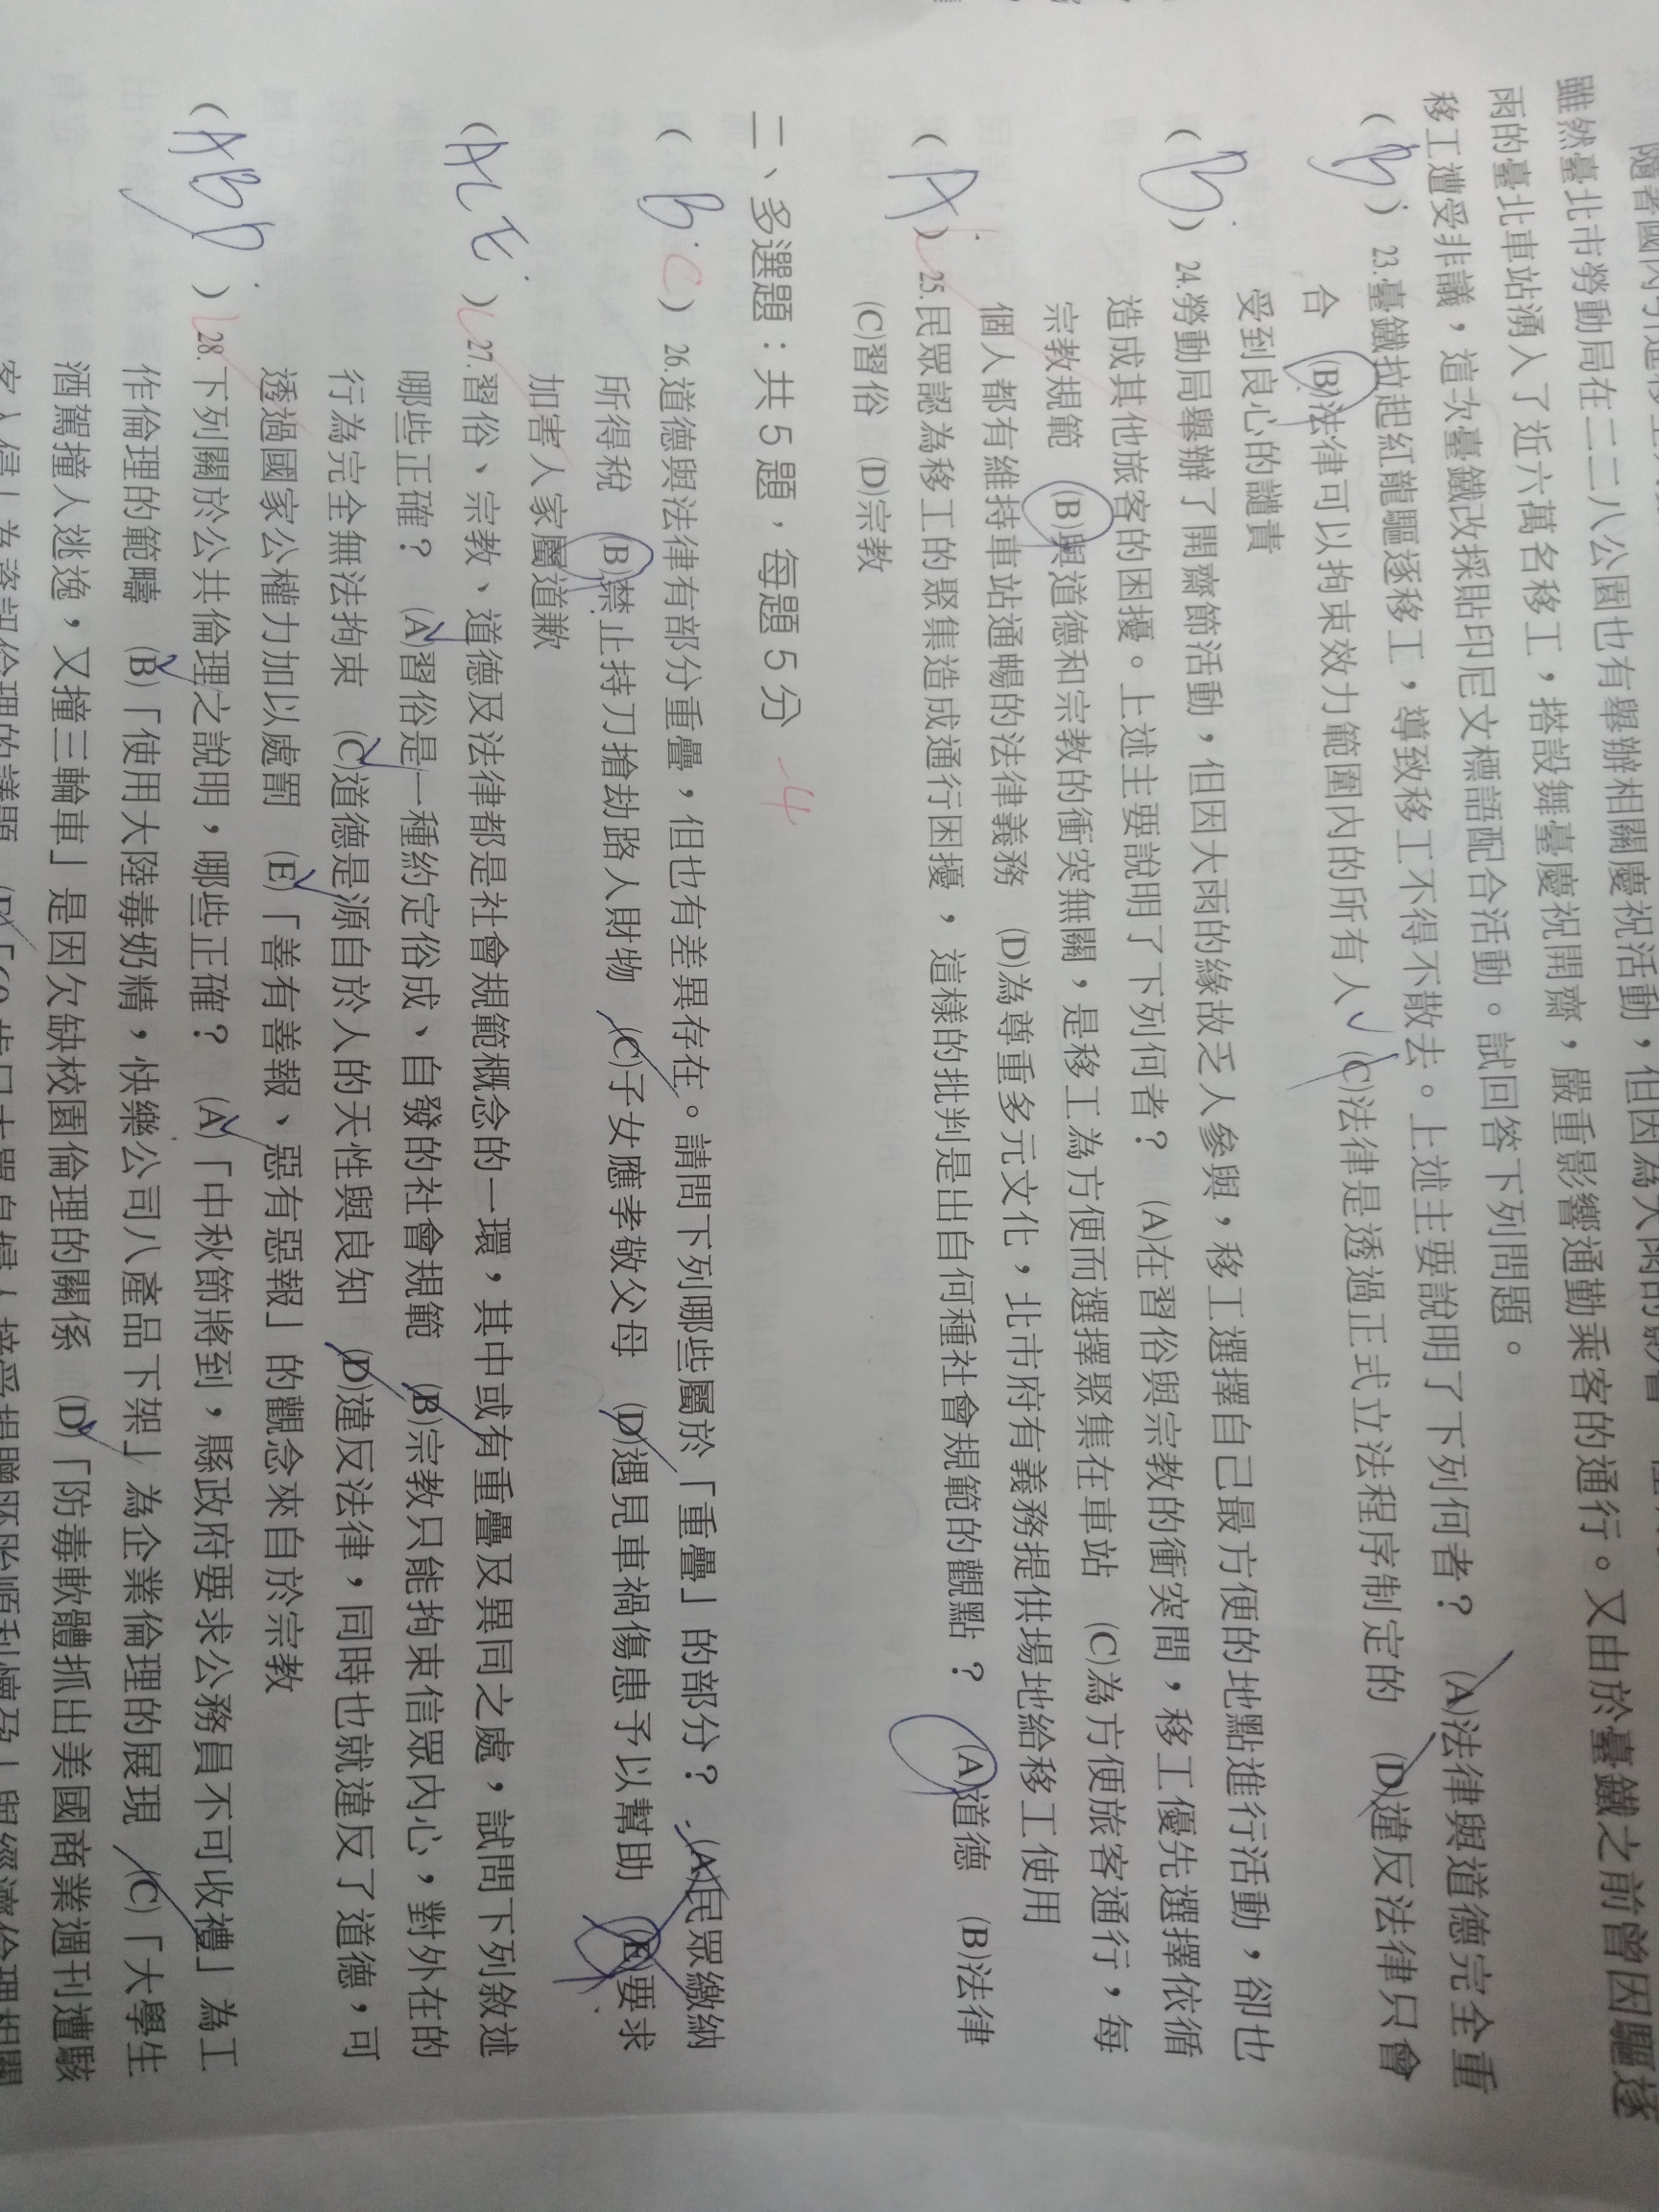 隨著國內引進移工
雖然臺北市勞動局在二二八公園也有舉辦相關慶祝活動，但因為大雨的影響
雨的臺北車站湧入了近六萬名移工，搭設舞臺慶祝開齋，嚴重影響通勤乘客的通行。又由於臺鐵之前曾因驅逐
移工遭受非議，這次臺鐵改採貼印尼文標語配合活動。試回答下列問題。
(B) 23.臺鐵拉起紅龍驅逐移工，導致移工不得不散去。上述主要說明了下列何者？ (A)法律與道德完全重
合 (B)法律可以拘束效力範圍內的所有人 (C)法律是透過正式立法程序制定的 (D)違反法律只會
受到良心的譴責
(B) 24.勞動局舉辦了開齋節活動，但因大雨的緣故乏人參與，移工選擇自己最方便的地點進行活動，卻也
造成其他旅客的困擾。上述主要說明了下列何者？ (A)在習俗與宗教的衝突間，移工優先選擇依循
宗教規範 (B)與道德和宗教的衝突無關，是移工為方便而選擇聚集在車站 (C)為方便旅客通行，每
個人都有維持車站通暢的法律義務 (D)為尊重多元文化，北市府有義務提供場地給移工使用
(A) 25.民眾認為移工的聚集造成通行困擾，這樣的批判是出自何種社會規範的觀點？ (A)道德 (B)法律
(C)習俗 (D)宗教
二、多選題：共 5 題，每題 5 分 -4
(B C) 26.道德與法律有部分重疊，但也有差異存在。請問下列哪些屬於「重疊」的部分？ (A)民眾繳納
所得稅 (B)禁止持刀搶劫路人財物 (C)子女應孝敬父母 (D)遇見車禍傷患予以幫助 (E)要求
加害人家屬道歉
(ACE) 27.習俗、宗教、道德及法律都是社會規範概念的一環，其中或有重疊及異同之處，試問下列敘述
哪些正確？ (A)習俗是一種約定俗成、自發的社會規範 (B)宗教只能拘束信眾內心，對外在的
行為完全無法拘束 (C)道德是源自於人的天性與良知 (D)違反法律，同時也就違反了道德，可
透過國家公權力加以處罰 (E)「善有善報、惡有惡報」的觀念來自於宗教
(ABD) 28.下列關於公共倫理之說明，哪些正確？ (A)「中秋節將到，縣政府要求公務員不可收禮」為工
作倫理的範疇 (B)「使用大陸毒奶精，快樂公司八產品下架」為企業倫理的展現 (C)「大學生
酒駕撞人逃逸，又撞三輪車」是因欠缺校園倫理的關係 (D)「防毒軟體抓出美國商業週刊遭駭
客入侵」為資訊倫理的議題